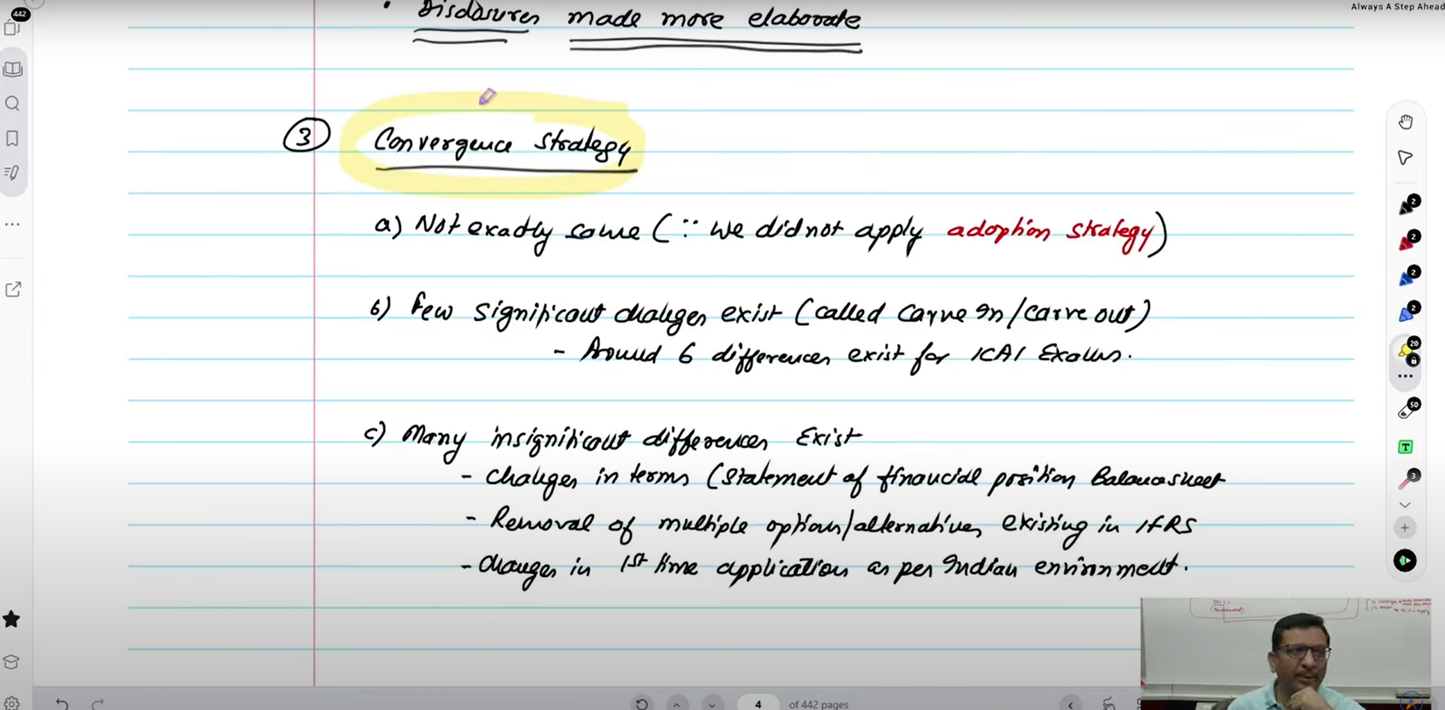 442
Always A Step Ahead
• Disclosures made more elaborate
③ Convergence Strategy
a) Not exactly same (∵ we did not apply adoption strategy)
b) Few significant changes exist (called carve in/carve out)
- Around 6 differences exist for ICAI Exams.
c) Many insignificant differences Exist
- changes in terms (Statement of financial position Balance sheet
- Removal of multiple options/alternatives existing in IFRS
- changes in 1st time application as per Indian environment.
2
2
2
2
20
50
T
3
4 of 442 pages